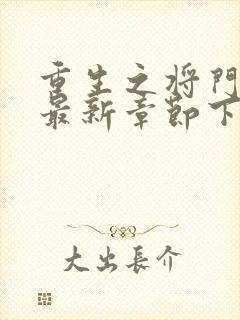 重生之将门
最新章節下
大出長介